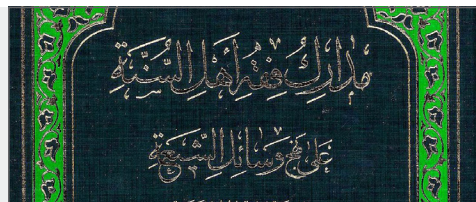 مدارك فقه أهل السنة
على نهج وسائل الشيعة